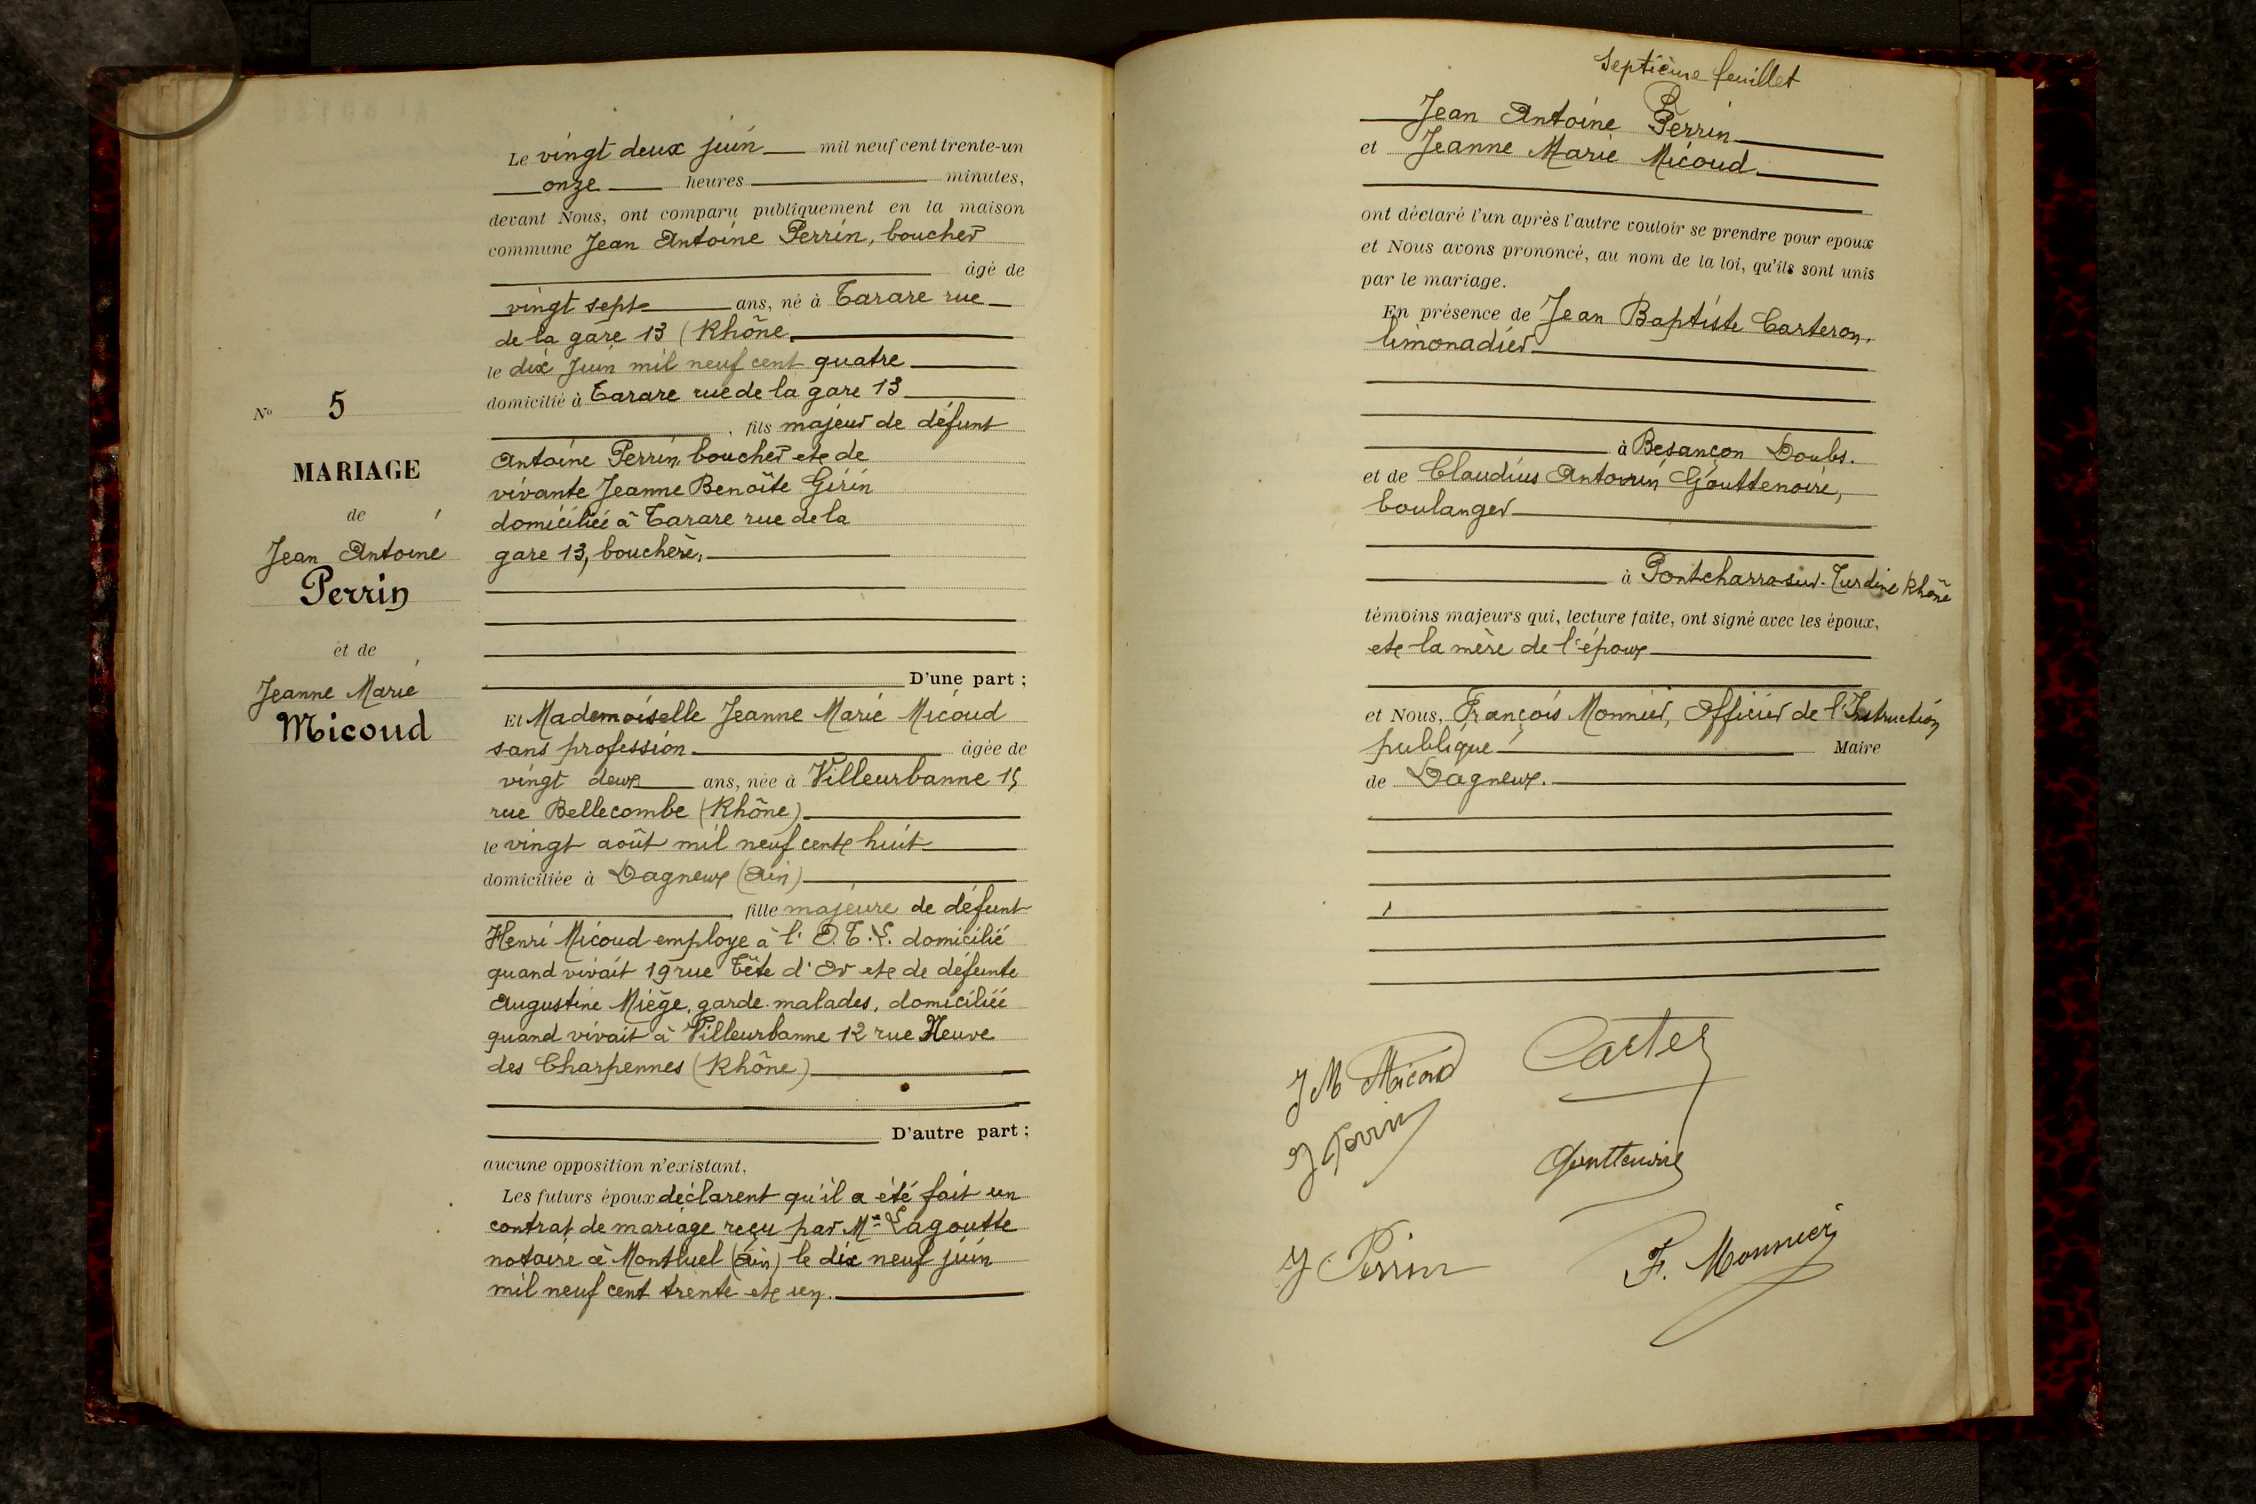 N° 5
MARIAGE
de
Jean Antoine
Perrin
et de
Jeanne Marie
Micoud
Le vingt deux juin mil neuf cent trente-un
onze heures minutes,
devant Nous, ont comparu publiquement en la maison
commune Jean Antoine Perrin, boucher
âgé de
vingt sept ans, né à Tarare rue
de la gare 13 (Rhône
le dix Juin mil neuf cent quatre
domicilié à Tarare rue de la gare 13
, fils majeur de défunt
Antoine Perrin, boucher et de
vivante Jeanne Benoîte Girin
domiciliée à Tarare rue de la
gare 13, bouchère,
D'une part ;
Et Mademoiselle Jeanne Marie Micoud
sans profession âgée de
vingt deux ans, née à Villeurbanne 15
rue Bellecombe (Rhône)
le vingt août mil neuf cent huit
domiciliée à Dagneux (Ain)
, fille majeure de défunt
Henri Micoud employe à l'O.T.L. domicilié
quand vivait 19 rue Tête d'Or et de défunte
Augustine Miège, garde-malades, domiciliée
quand vivait à Villeurbanne 12 rue Neuve
des Charpennes (Rhône)
D'autre part ;
aucune opposition n'existant,
Les futurs époux déclarent qu'il a été fait un
contrat de mariage reçu par Me Lagoutte
notaire à Montluel (Ain) le dix neuf juin
mil neuf cent trente et un.
Septième feuillet
Jean Antoine Perrin
et Jeanne Marie Micoud
ont déclaré l'un après l'autre vouloir se prendre pour epoux
et Nous avons prononcé, au nom de la loi, qu'ils sont unis
par le mariage.
En présence de Jean Baptiste Carteron,
limonadier
à Besançon Doubs.
et de Claudius Antonin Gouttenoire,
boulanger
à Pontcharra-sur-Turdine Rhône
témoins majeurs qui, lecture faite, ont signé avec les époux,
et la mère de l'époux
et Nous, François Monnier, Officier de l'Instruction
publique Maire
de Dagneux.
J M Micoud
J Perrin
Gouttenoire
J Perrin
F. Monnier